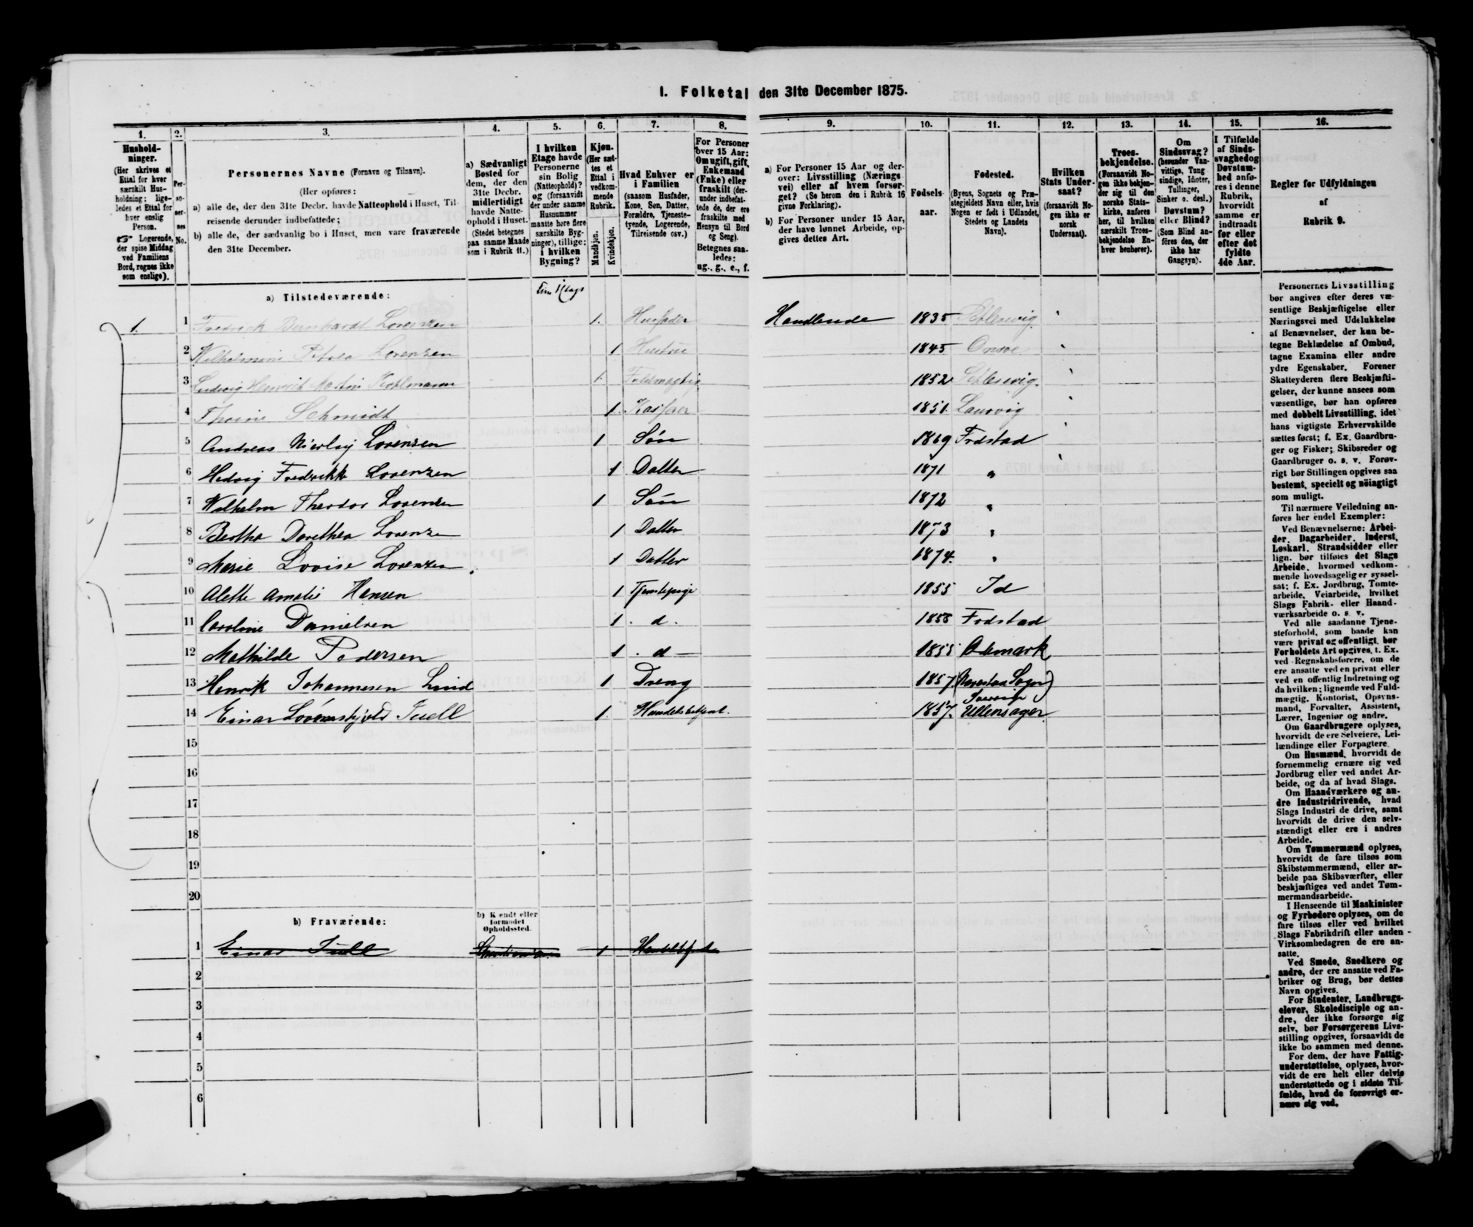 I. Folketal den 31te December 1875.
1. 2. 3. 4. 5. 6. 7. 8. 9. 10. 11. 12. 13. 14. 15. 16.
Hushold-
ninger.
(Her skrives et
Ettal for hver
særskilt Hus-
holdning; lige-
ledes et Ettal for
hver enslig
Person.
☞ Logerende,
der spise Middag
ved Familiens
Bord, regnes ikke
som enslige).
Per-
soner-
nes
No.
Personernes Navne (Fornavn og Tilnavn).
(Her opføres:
a) alle de, der den 31te Decbr. havde Natteophold i Huset, Til-
reisende derunder indbefattede;
b) alle de, der sædvanlig bo i Huset, men vare fraværende
den 31te December.
a) Sædvanligt
Bosted for
dem, der den
31te Decbr.
midlertidigt
havde Natte-
ophold i Huset.
(Stedet betegnes
paa samme Maade
som i Rubrik 11.)
I hvilken
Etage havde
Personerne
sin Bolig
(Natteophold)?
og (forsaavidt
der under samme
Husnummer
maatte høre flere
særskilte Byg-
ninger), tillige:
i hvilken
Bygning?
Kjøn.
(Her sæt-
tes et
Ettal i
vedkom-
mende
Rubrik.
Mandkjøn.
Kvindekjøn.
Hvad Enhver er
i Familien
(saasom Husfader,
Kone, Søn, Datter,
Forældre, Tjeneste-
tyende, Logerende,
Tilreisende osv.)
For Personer
over 15 Aar:
Om ugift, gift,
Enkemand
(Enke) eller
fraskilt (der-
under indbefat-
tede de, der ere
fraskilte med
Hensyn til Bord
og Seng).
Betegnes saa-
ledes:
ug., g., e., f.
a) For Personer 15 Aar og der-
over: Livsstilling (Nærings
vei) eller af hvem forsør-
get? (Se herom den i Rubrik 16
givne Forklaring).
b) For Personer under 15 Aar,
der have lønnet Arbeide, op-
gives dettes Art.
Fødsels-
aar.
Fødested.
(Byens, Sognets og Præ-
stegjeldets Navn eller, hvis
Nogen er født i Udlandet,
Stedets og Landets
Navn).
Hvilken
Stats Under-
saat?
(forsaavidt No-
gen ikke er
norsk
Undersaat).
Troes-
bekjendelse.
(Forsaavidt No-
gen ikke bekjen-
der sig til den
norske Stats-
kirke, anføres
her, til hvilken
særskilt Troes-
bekjendelse En-
hver henhører).
Om
Sindssvag?
(herunder Van-
vittige, Tung
sindige, Idioter,
Tullinger,
Sinker o. desl.)
Døvstum?
eller Blind?
(Som Blind an-
føres den, der
ikke har
Gangsyn).
I Tilfælde
af Sinds-
svaghed og
Døvstum-
hed anfø-
res i denne
Rubrik,
hvorvidt
samme er
indtraadt
før eller
efter det
fyldte
4de Aar.
Regler for Udfyldningen
af
Rubrik 9.
a) Tilstedeværende:
1. 1 Fredrik Bernhardt Lorenzen 1. Husfader Handlende 1835 Slesvig
2 Lorenzen 1 Hustru 1845 Onsø
3 Ludvig Henrik 1. 1852 Slesvig.
4 Schmidt 1. 1851. Laurvig
5 Andreas Nicolay Lorenzen 1 Søn 1869 Fredstad
6 Hedvig Fredrikke Lorenzen 1 Datter 1871 "
7 Wilhelm Theodor Lorenzen 1 Søn 1872 "
8 Bertha Dorethea Lorenzen 1 Datter 1873 "
9 Marie Lovise Lorenzen. 1 Datter 1874. "
10 Alette Amalie Hansen 1 Tjenstepige 1855 Id
11 Caroline Danielsen 1 . d. Fredstad
12 Mathilde Pedersen 1 . d — 1855
13 Henrik Johannesen Lund 1 Dreng 1857
14 Einar Juell 1. 1857. Ullensager
15
16
17
18
19
20
b) Fraværende:
b) Kjendt eller
formodet
Opholdssted.
1 Einar Juell 1
2
3
4
5
6
Personernes Livsstilling
bør angives efter deres væ-
sentlige Beskjæftigelse eller
Næringsvei med Udelukkelse
af Benævnelser, der kun be-
tegne Beklædelse af Ombud,
tagne Examina eller andre
ydre Egenskaber. Forener
Skatteyderen flere Beskjæfti-
gelser, der kunne ansees som
væsentlige, bør han opføres
med dobbelt Livsstilling, idet
hans vigtigste Erhvervskilde
sættes først; f. Ex. Gaardbru-
ger og Fisker; Skibsreder og
Gaardbruger o. s. v. Forøv-
rigt bør Stillingen opgives saa
bestemt, specielt og nøiagtigt
som muligt.
Til nærmere Veiledning an-
føres her endel Exempler:
Ved Benævnelserne: Arbei-
der, Dagarbeider, Inderst,
Løskarl, Strandsidder eller
lign. bør tilføies det Slags
Arbeide, hvormed vedkom-
mende hovedsagelig er syssel-
sat; f. Ex. Jordbrug, Tomte-
arbeide, Veiarbeide, hvilket
Slags Fabrik- eller Haand-
værksarbeide o. s. v.
Ved alle saadanne Tjene-
steforhold, som baade kan
være privat og offentligt, bør
Forholdets Art opgives, t. Ex.
ved Regnskabsførere, om de
ere ansatte ved en privat eller
ved en offentlig Indretning og
da hvilken; lignende ved Fuld-
mægtig, Kontorist, Opsyns-
mand, Forvalter, Assistent,
Lærer, Ingeniør og andre.
Om Gaardbrugere oplyses,
hvorvidt de ere Selveiere, Lei-
lændinge eller Forpagtere.
Om Husmænd, hvorvidt de
fornemmelig ernære sig ved
Jordbrug eller ved andet Ar-
beide, og da af hvad Slags.
Om Haandværkere og an-
dre Industridrivende, hvad
Slags Industri de drive, samt
hvorvidt de drive den selv-
stændigt eller ere i andres
Arbeide.
Om Tømmermænd oplyses,
hvorvidt de fare tilsøs som
Skibstømmermænd, eller ar-
beide paa Skibsværfter, eller
beskjæftiges ved andet Tøm-
mermandsarbeide.
I Henseende til Maskinister
og Fyrbødere oplyses, om de
fare tilsøs eller ved hvilket
Slags Fabrikdrift eller anden
Virksomhedsgren de ere an-
satte.
Ved Smede, Snedkere og
andre, der ere ansatte ved Fa-
briker og Brug, bør dettes
Navn opgives.
For Studenter, Landbrugs-
elever, Skoledisciple og an-
dre, der ikke forsørge sig
selv, bør Forsørgerens Livs-
stilling opgives, forsaavidt de
ikke bo sammen med denne.
For dem, der have Fattig-
understøttelse, oplyses, hvor-
vidt de ere helt eller delvis
understøttede og i sidste Til-
fælde, hvad de forøvrigt er-
nære sig ved.